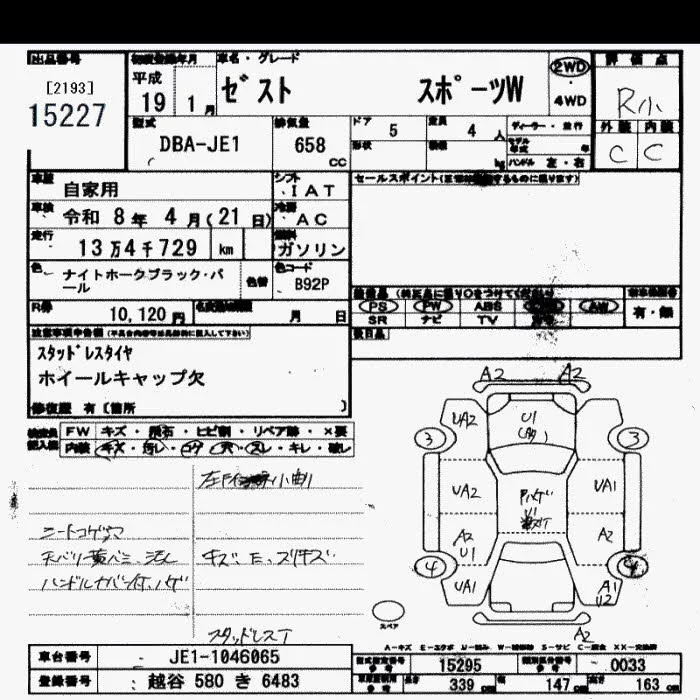 出品番号
[2193]
15227
初度登録年月
平成
19 1月
車名・グレード
ゼスト スポーツW
2WD
・
4WD
評価点
R小
外装 内装
C C
型式
DBA-JE1
排気量
658
cc
ドア 5
形状
定員 4 人
積載 kg
ディーラー・並行
モデル年式 年
ハンドル 左・右
車歴 自家用
シフト IAT
セールスポイント
車検 令和 8年 4月(21日)
冷房 AC
走行 13万4千729 km
燃料 ガソリン
色 ナイトホークブラック・パール
色替
色コード B92P
PS PW ABS AW
SR ナビ TV
有・無
R券 10,120円
月 日
注意事項申告欄
スタッドレスタイヤ
ホイールキャップ欠
修復歴 有 [箇所 ]
FW キズ・飛石・ヒビ割・リペア跡・×要
内装 キズ・汚レ・コゲ・穴・スレ・キレ・破レ
A2 A2
UA2
U1
3 3
UA2
UA1
A2
U1
A2
4 4
UA1
A1
U2
A2
シートコゲ穴
キズ、E、スリキズ
スタッドレスT
スペア
車台番号 JE1-1046065
登録番号 越谷 580 き 6483
型式指定番号 15295
類別区分番号 0033
長さ 339 cm
幅 147 cm
高さ 163 cm